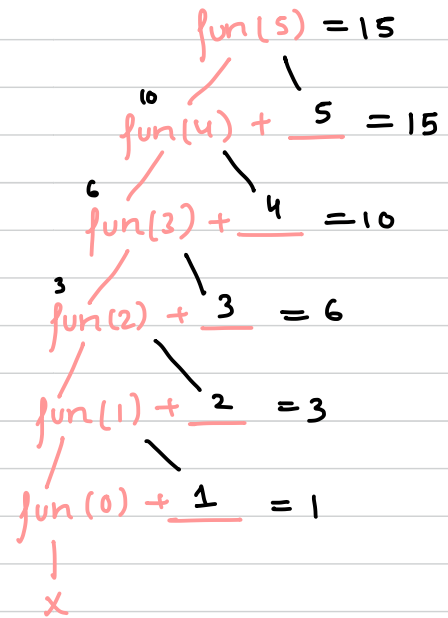 fun(5) = 15
10
fun(4) + 5 = 15
6
fun(3) + 4 = 10
3
fun(2) + 3 = 6
fun(1) + 2 = 3
fun(0) + 1 = 1
x